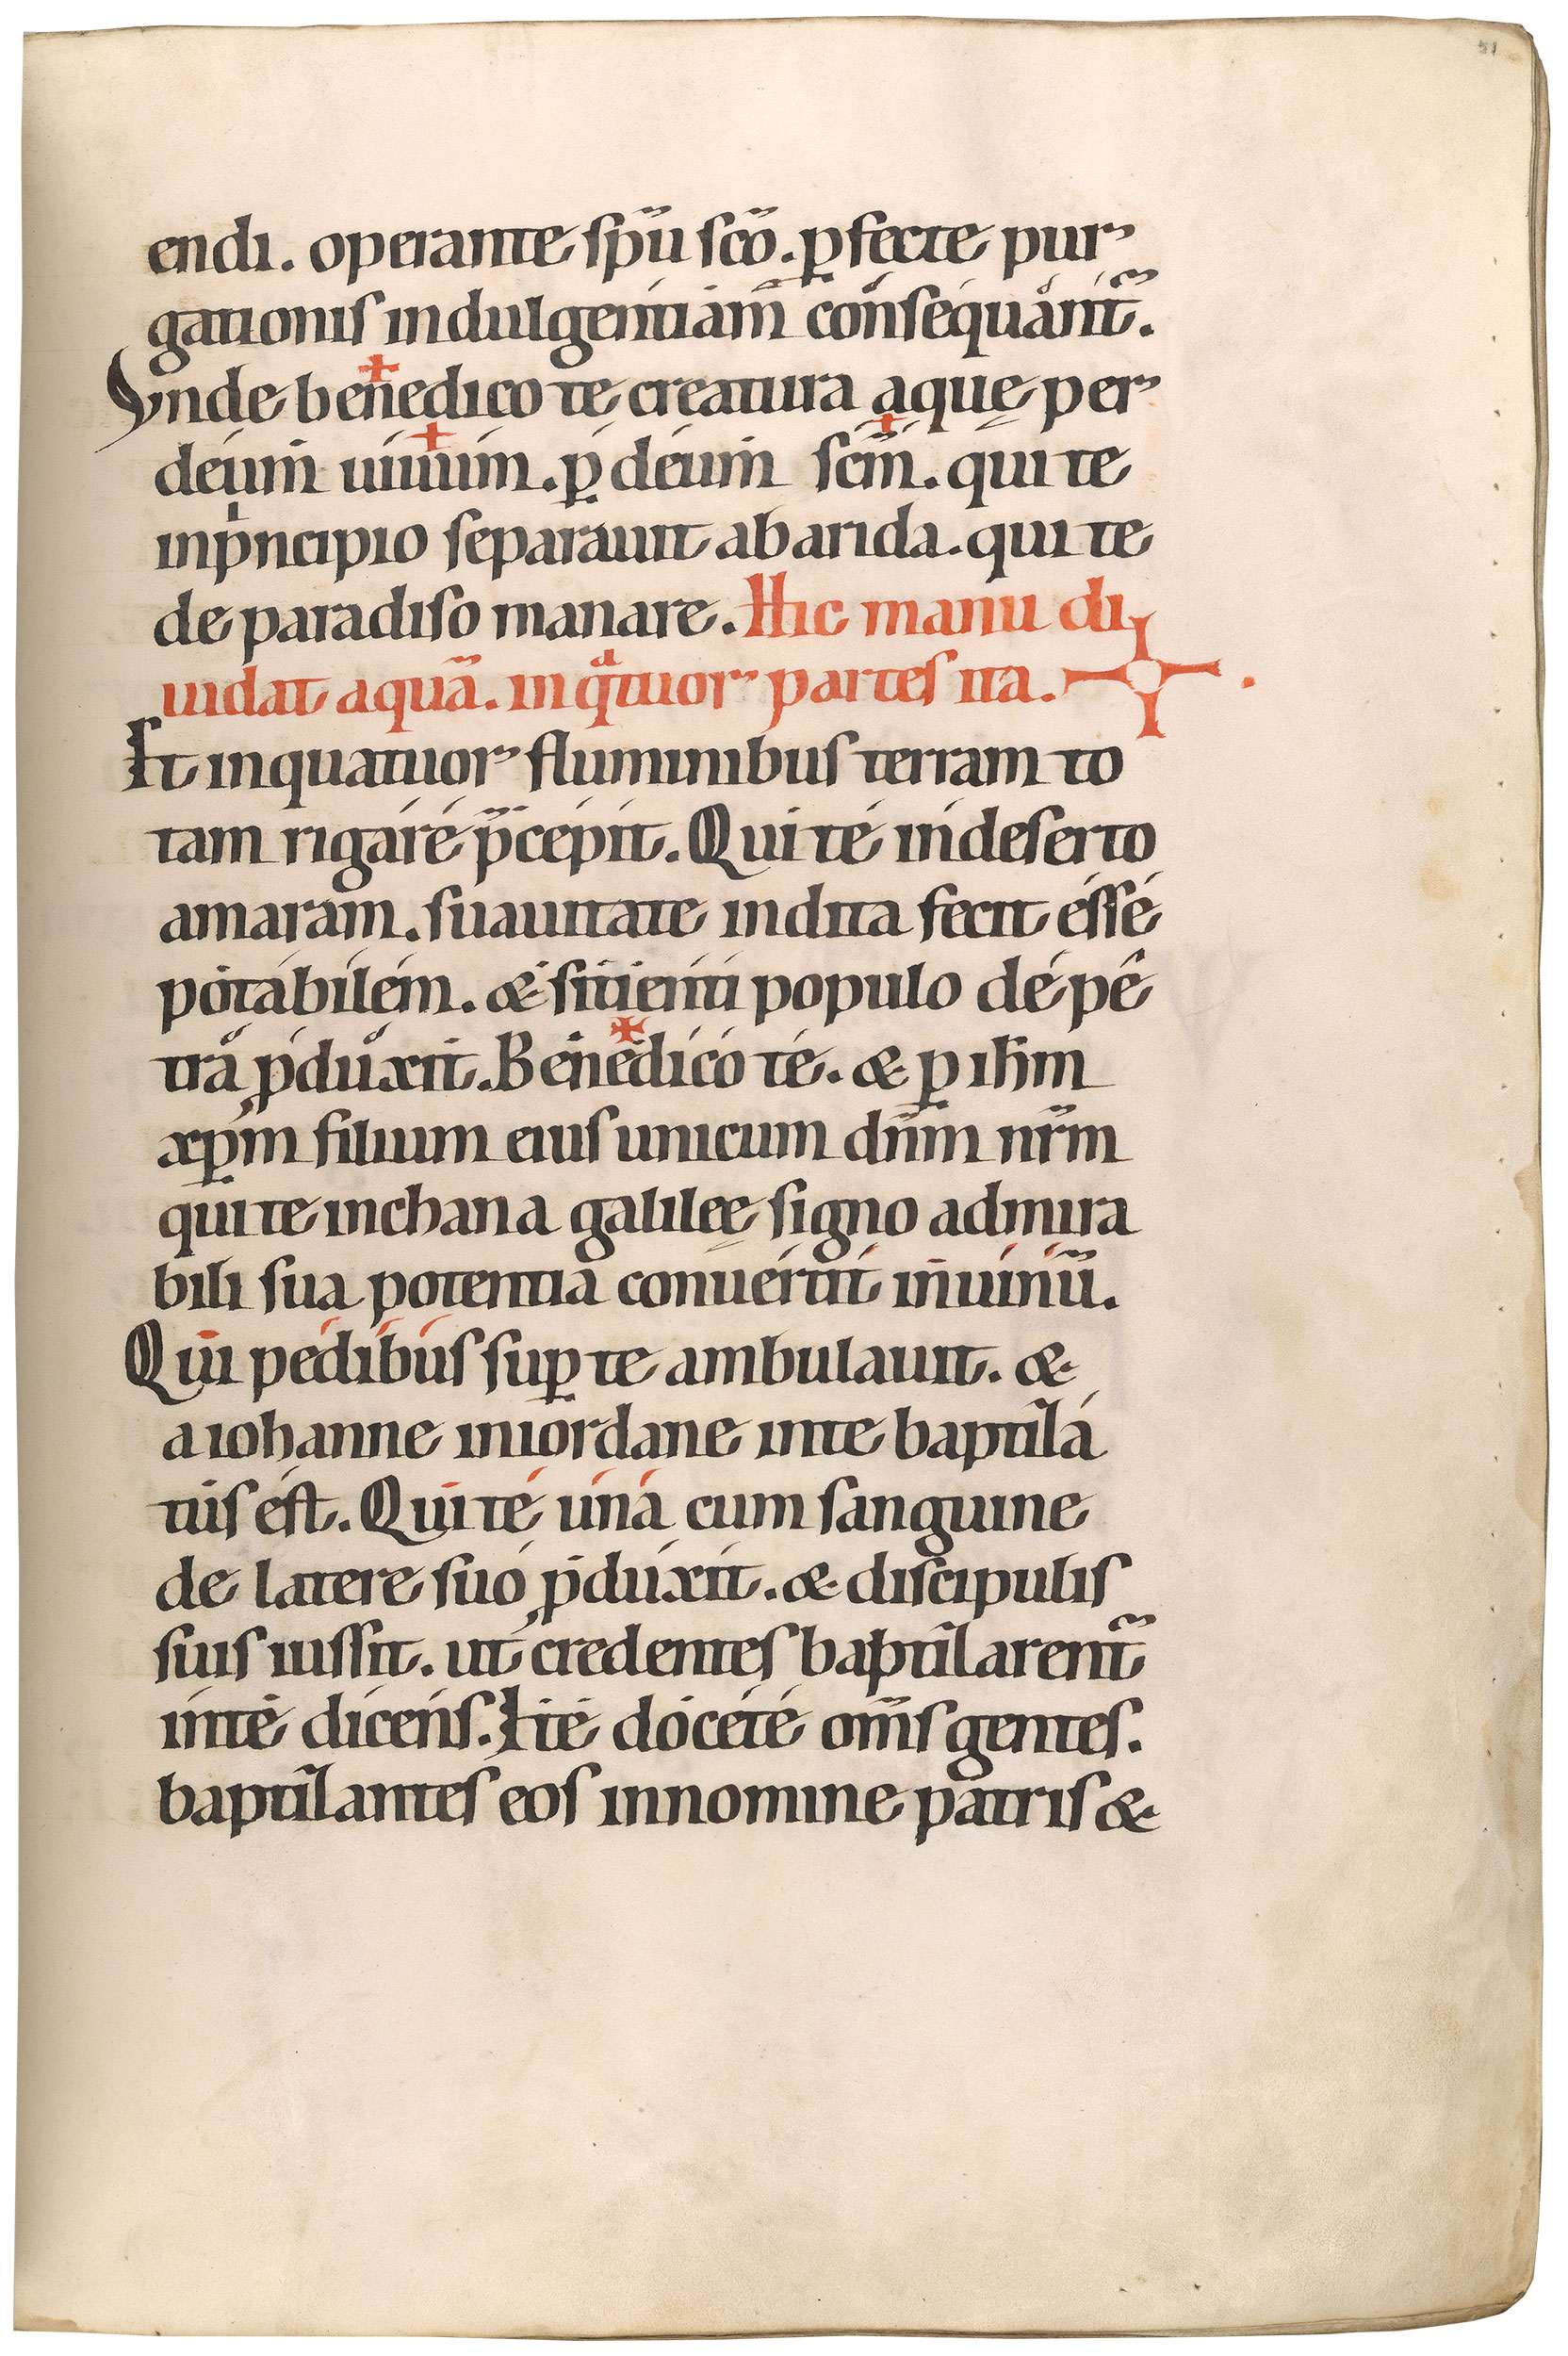 51
endi. operante sp̄u sc̄o. ꝑfecte pur
gationis indulgentiam consequant̄.
Vnde benedico te creatura aquę per
deum uiuum. ꝑ deum sc̄m. qui te
inpͥncipio separauit ab arida. qui te
de paradiso manare. Hic manu di
uidat aquā. in qͣtuor partes ita.
Et inquatuor fluminibus terram to
tam rigare p̄cepit. Qui te indeserto
amaram. suauitate indita fecit esse
potabilem. & sitienti populo de pe
tra ꝓduxit. Benedico te. & ꝑ ih̄m
xp̄m filium eius unicum dn̄m nr̄m
qui te inchana galileę signo admira
bili sua potentia conuertit inuinū.
Qui pedibus suꝑ te ambulauit. &
a iohanne iniordane inte baptiza
tus est. Qui te una cum sanguine
de latere suo ꝓduxit. & discipulis
suis iussit. ut credentes baptizarent̄
inte dicens. Ite docete om̄s gentes.
baptizantes eos innomine patris &